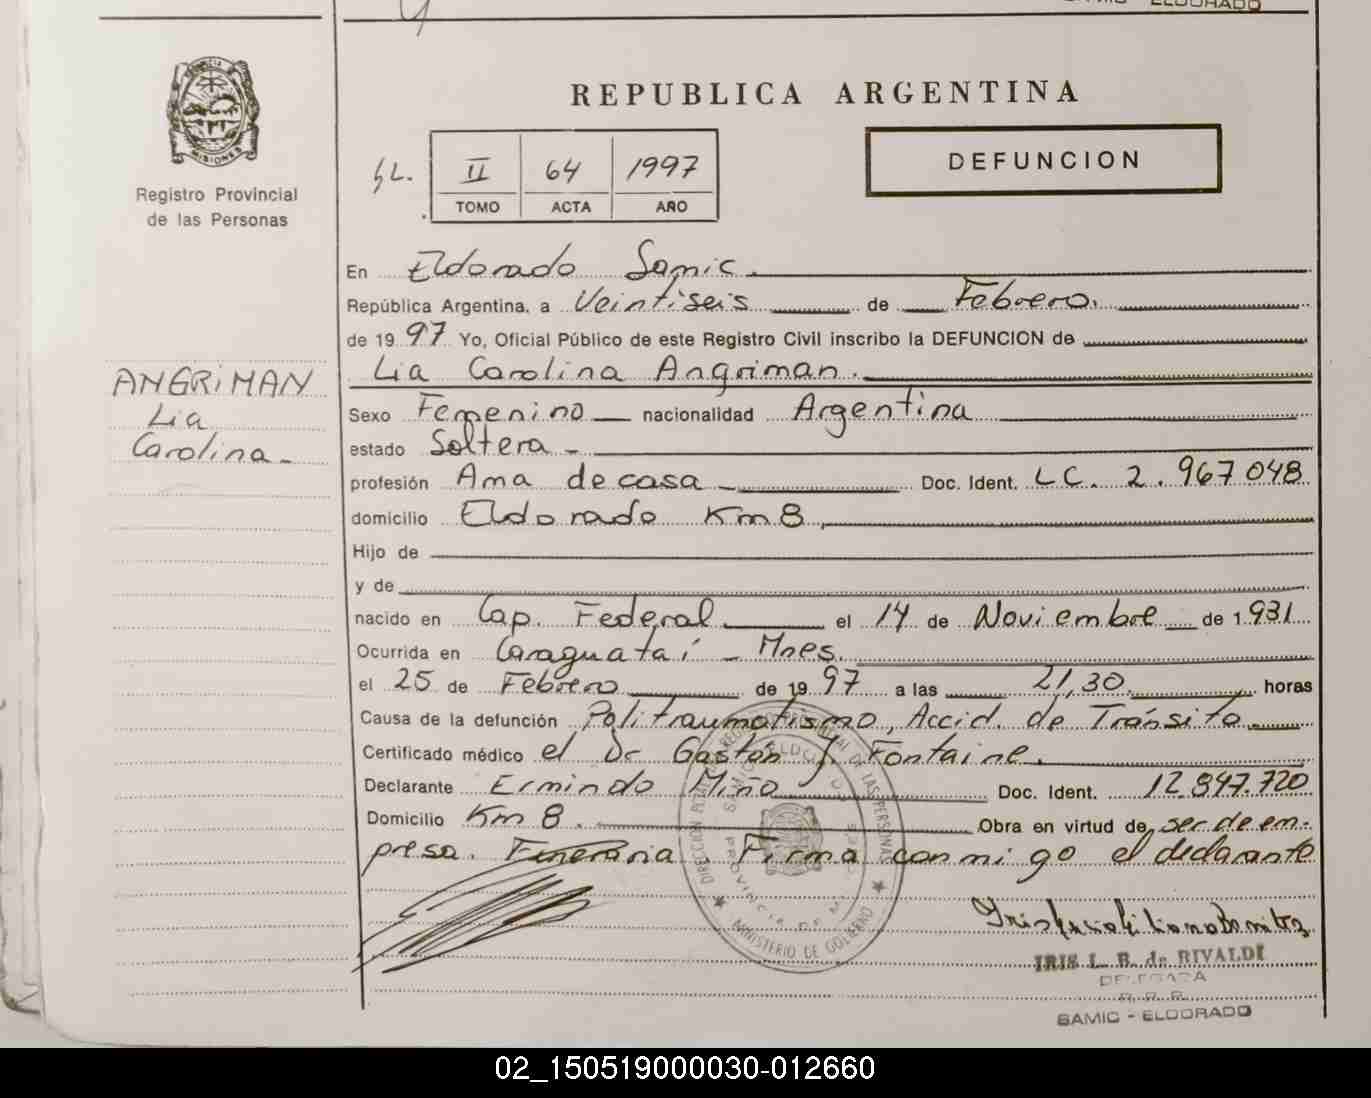 SAMIC - ELDORADO
PROVINCIA DE
MISIONES
Registro Provincial
de las Personas
REPUBLICA ARGENTINA
DEFUNCION
II 64 1997
TOMO ACTA AÑO
ANGRIMAN
Lia
Carolina -
En Eldorado Samic.
República Argentina, a Veintiseis de Febrero.
de 1997 Yo, Oficial Público de este Registro Civil inscribo la DEFUNCION de
Lia Carolina Angriman.
Sexo Femenino nacionalidad Argentina
estado Soltera -
profesión Ama de casa - Doc. Ident. LC. 2.967048
domicilio Eldorado Km 8,
Hijo de
y de
nacido en Cap. Federal el 14 de Noviembre de 1.931
Ocurrida en Caraguataí - Mnes.
el 25 de Febrero de 1997 a las 21,30 horas
Causa de la defunción Politraumatismo, Accid. de Tránsito.
Certificado médico el Dr Gastón J. Fontaine.
Declarante Ermindo Miño Doc. Ident. 12.847.720
Domicilio Km 8. Obra en virtud de ser de em-
presa. Funeraria Firma conmigo el declarante
MINISTERIO DE GOBIERNO
PROVINCIA DE
IRIS L. B. de RIVALDI
DELEGADA
R. P. P.
SAMIC - ELDORADO
02_150519000030-012660